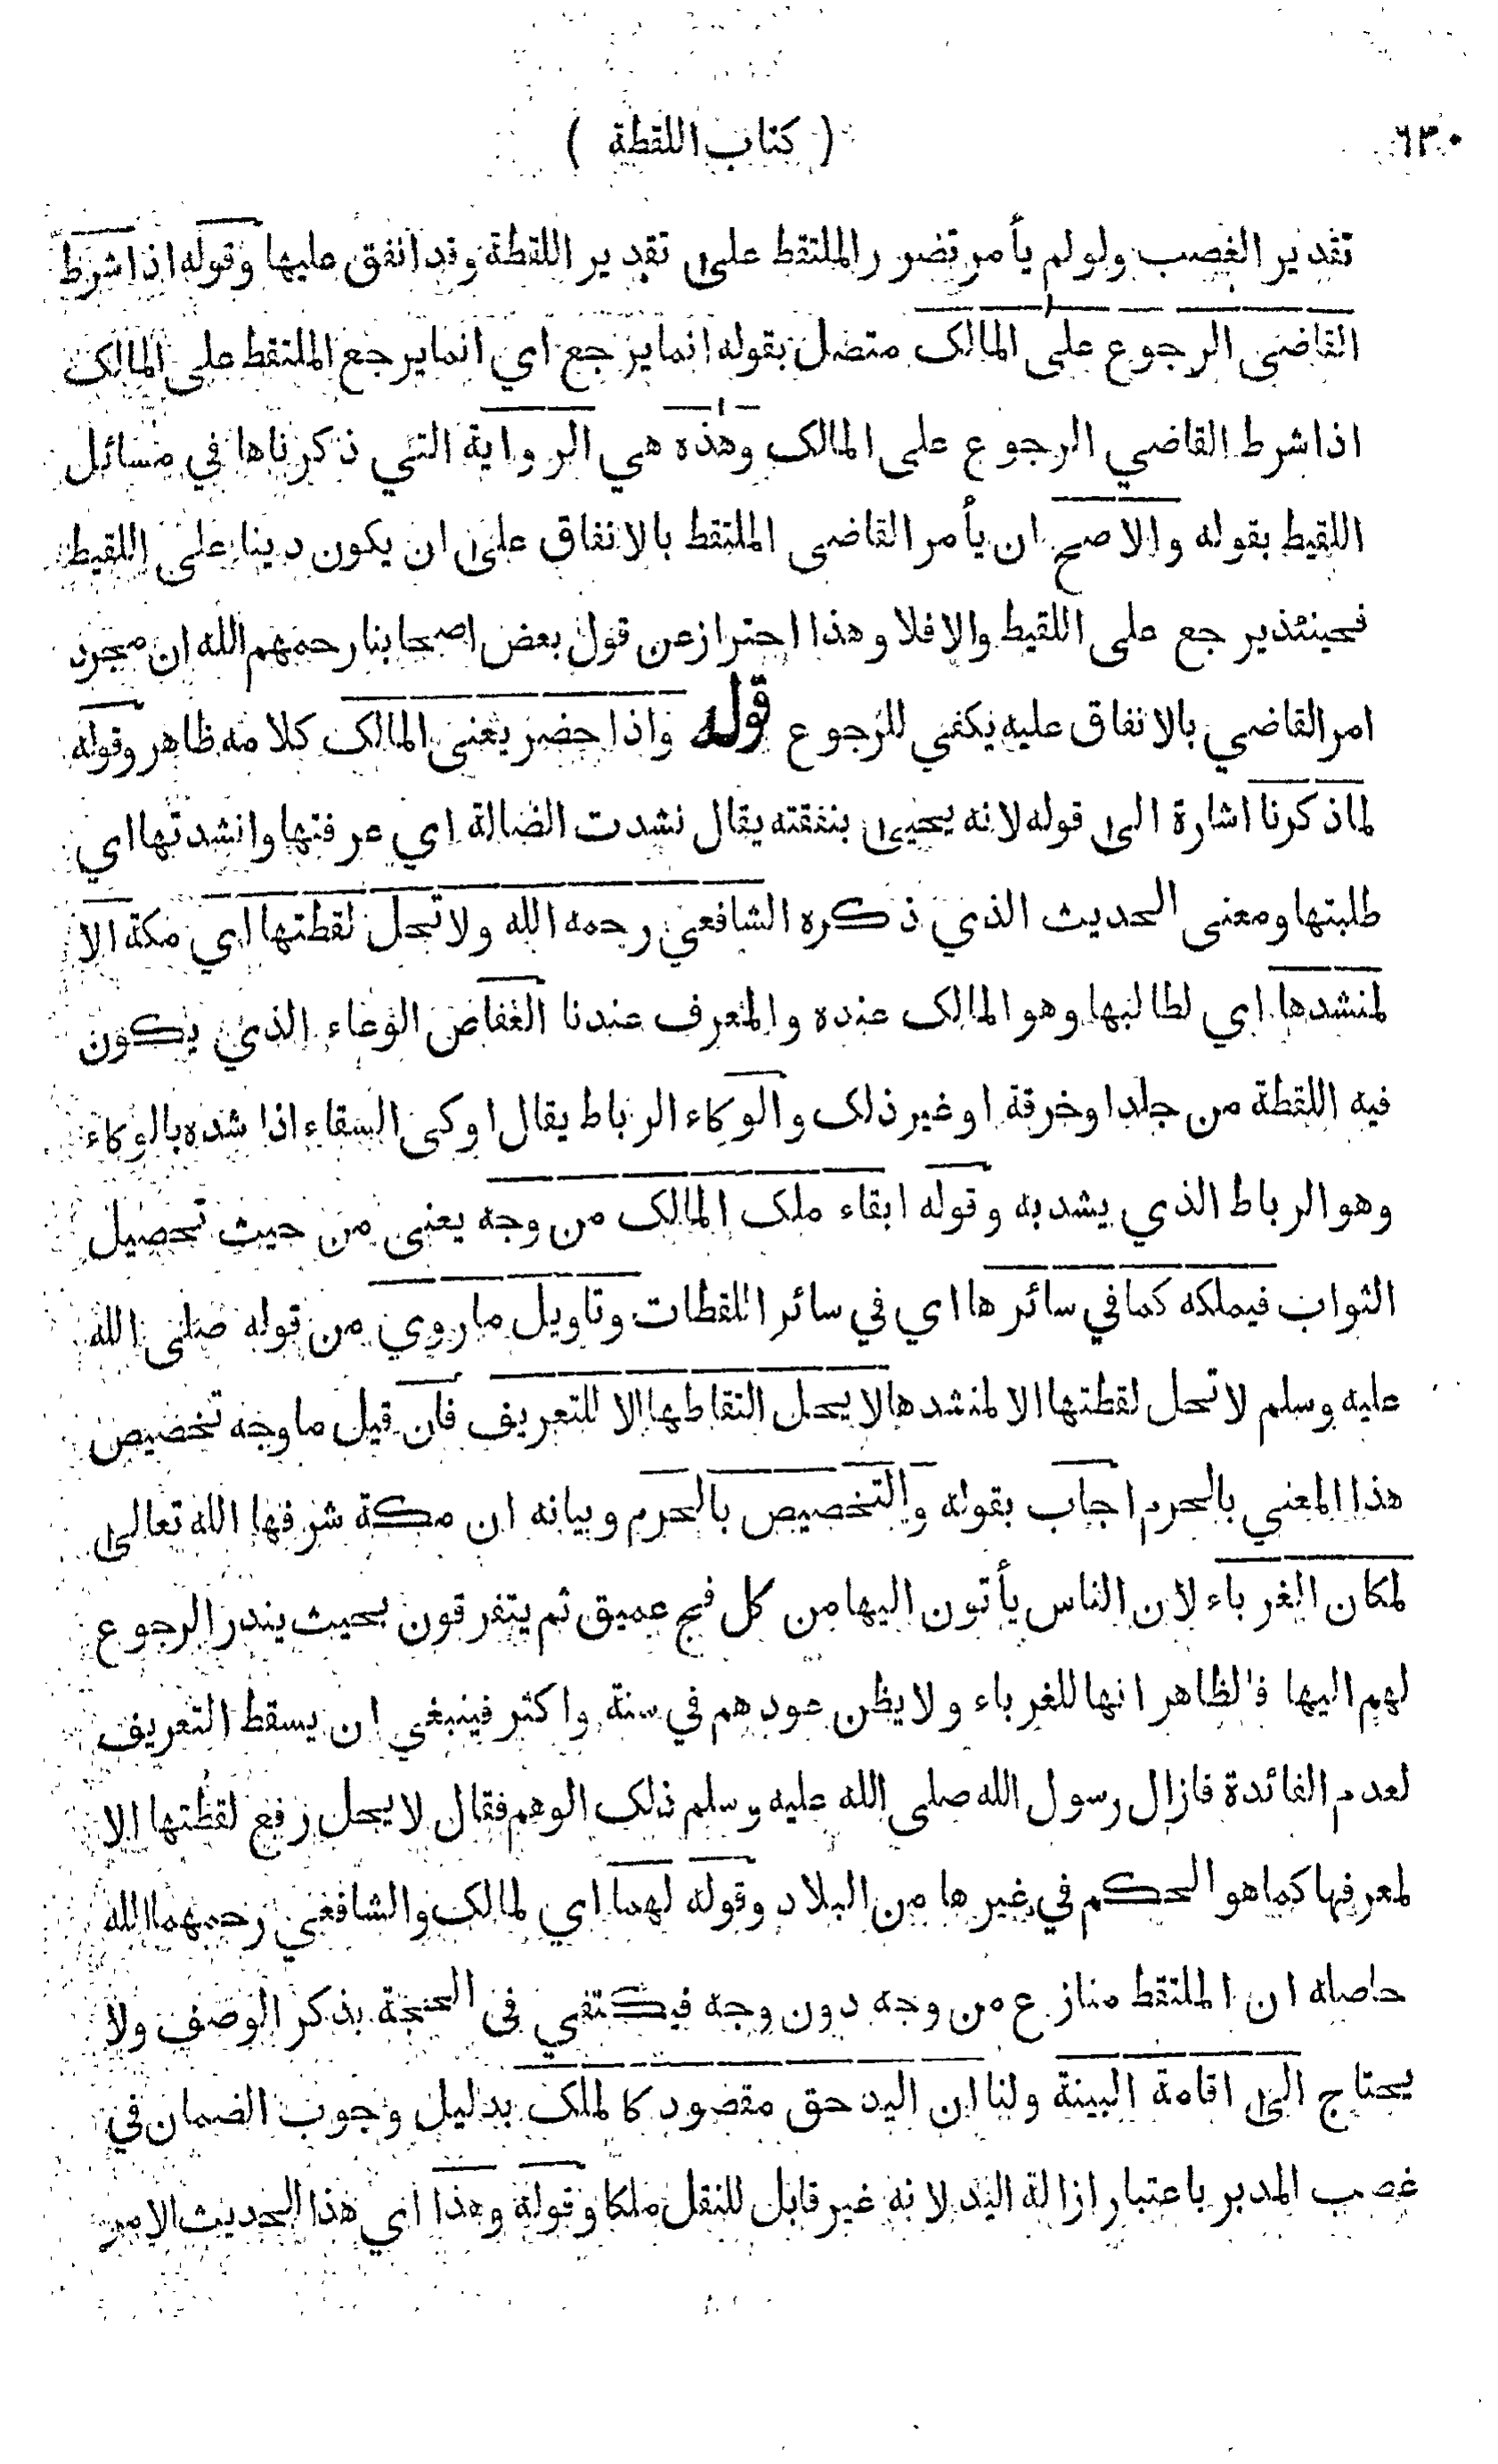 ٦٣٠
( كتاب اللقطة )
تقدير الغصب ولو لم يأمر تضرر الملتقط على تقدير اللقطة وقد انفق عليها وقوله اذا شرط
القاضي الرجوع على المالك متصل بقوله انما يرجع اي انما يرجع الملتقط على المالك
اذا شرط القاضي الرجوع على المالك وهذه هي الرواية التي ذكرناها في مسائل
اللقيط بقوله والاصح ان يأمر القاضي الملتقط بالانفاق على ان يكون دينا على اللقيط
فحينئذ يرجع على اللقيط والا فلا وهذا احتراز عن قول بعض اصحابنا رحمهم الله ان مجرد
امر القاضي بالانفاق عليه يكفي للرجوع قوله واذا حضر يعني المالك كلامه ظاهر وقوله
لما ذكرنا اشارة الى قوله لانه يحيى بنفقته يقال نشدت الضالة اي عرفتها وانشدتها اي
طلبتها ومعنى الحديث الذي ذكره الشافعي رحمه الله ولا تحل لقطتها اي مكة الا
لمنشدها اي لطالبها وهو المالك عنده والمعرف عندنا العفاص الوعاء الذي يكون
فيه اللقطة من جلد او خرقة او غير ذلك والوكاء الرباط يقال اوكى السقاء اذا شده بالوكاء
وهو الرباط الذي يشد به وقوله ابقاء ملك المالك من وجه يعني من حيث تحصيل
الثواب فيملكه كما في سائرها اي في سائر اللقطات وتاويل ما روي من قوله صلى الله
عليه وسلم لا تحل لقطتها الا لمنشدها لا يحل التقاطها الا للتعريف فان قيل ما وجه تخصيص
هذا المعني بالحرم اجاب بقوله والتخصيص بالحرم وبيانه ان مكة شرفها الله تعالى
لمكان الغرباء لان الناس يأتون اليها من كل فج عميق ثم يتفرقون بحيث يندر الرجوع
لهم اليها فالظاهر انها للغرباء ولا يظن عودهم في سنة واكثر فينبغي ان يسقط التعريف
لعدم الفائدة فازال رسول الله صلى الله عليه وسلم ذلك الوهم فقال لا يحل رفع لقطتها الا
لمعرفها كما هو الحكم في غيرها من البلاد وقوله لهما اي لمالك والشافعي رحمهما الله
حاصله ان الملتقط منازع من وجه دون وجه فيكتفي في الحجة بذكر الوصف ولا
يحتاج الى اقامة البينة ولنا ان اليد حق مقصود كالملك بدليل وجوب الضمان في
غصب المدبر باعتبار ازالة اليد لانه غير قابل للنقل ملكا وقوله وهذا اي هذا الحديث الامر